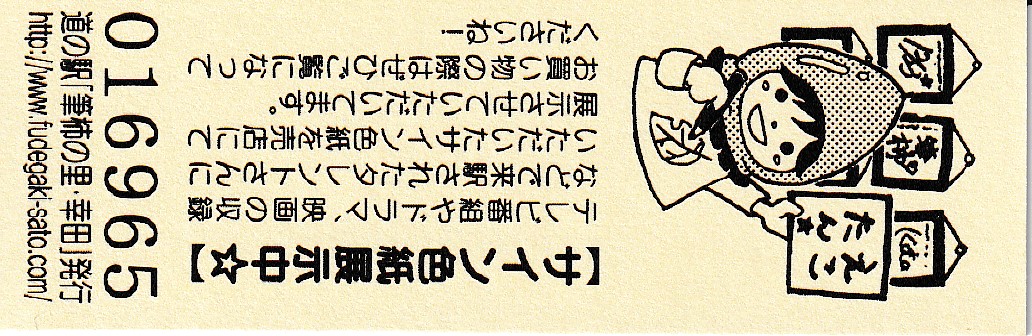 【サイン色紙展示中☆】
テレビ番組やドラマ、映画の収録
などで来駅されたタレントさんに
いただいたサイン色紙を売店にて
展示させていただいてます。
お買い物の際はぜひご覧になって
くださいね!
えこ
たん★
筆柿
016965
道の駅「筆柿の里・幸田」発行
http://www.fudegaki-sato.com/